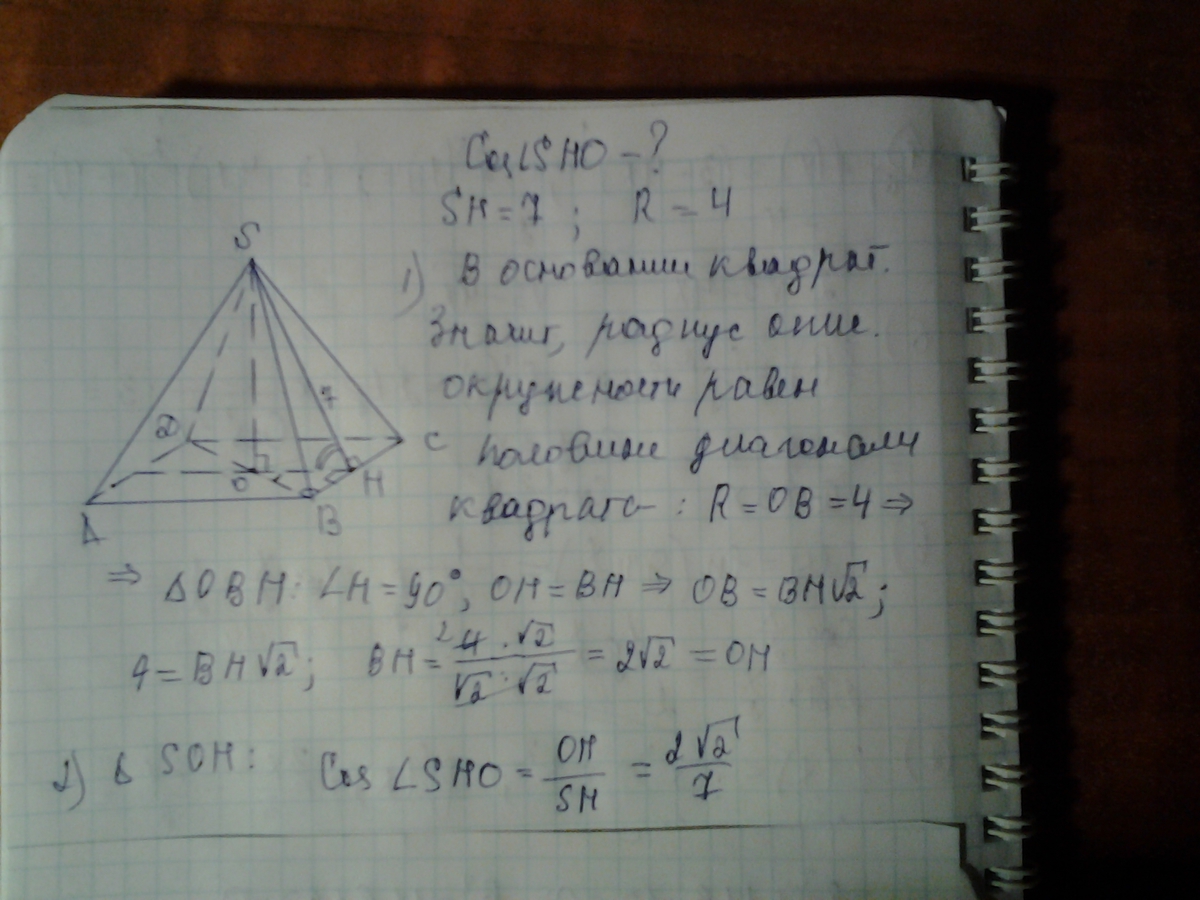 Cos∠SHO - ?
SH = 7 ; R = 4
S
1) В основании квадрат.
Значит, радиус опис.
окружности равен
половине диагонали
квадрата : R = OB = 4 ⇒
7
D
C
O
H
A
B
⇒ ΔOBH: ∠H = 90°, OH = BH ⇒ OB = BH√2;
4 = BH√2; BH = ²4 · √2 / √2 · √2 = 2√2 = OH
2) Δ SOH: Cos ∠SHO = OH / SH = 2√2 / 7